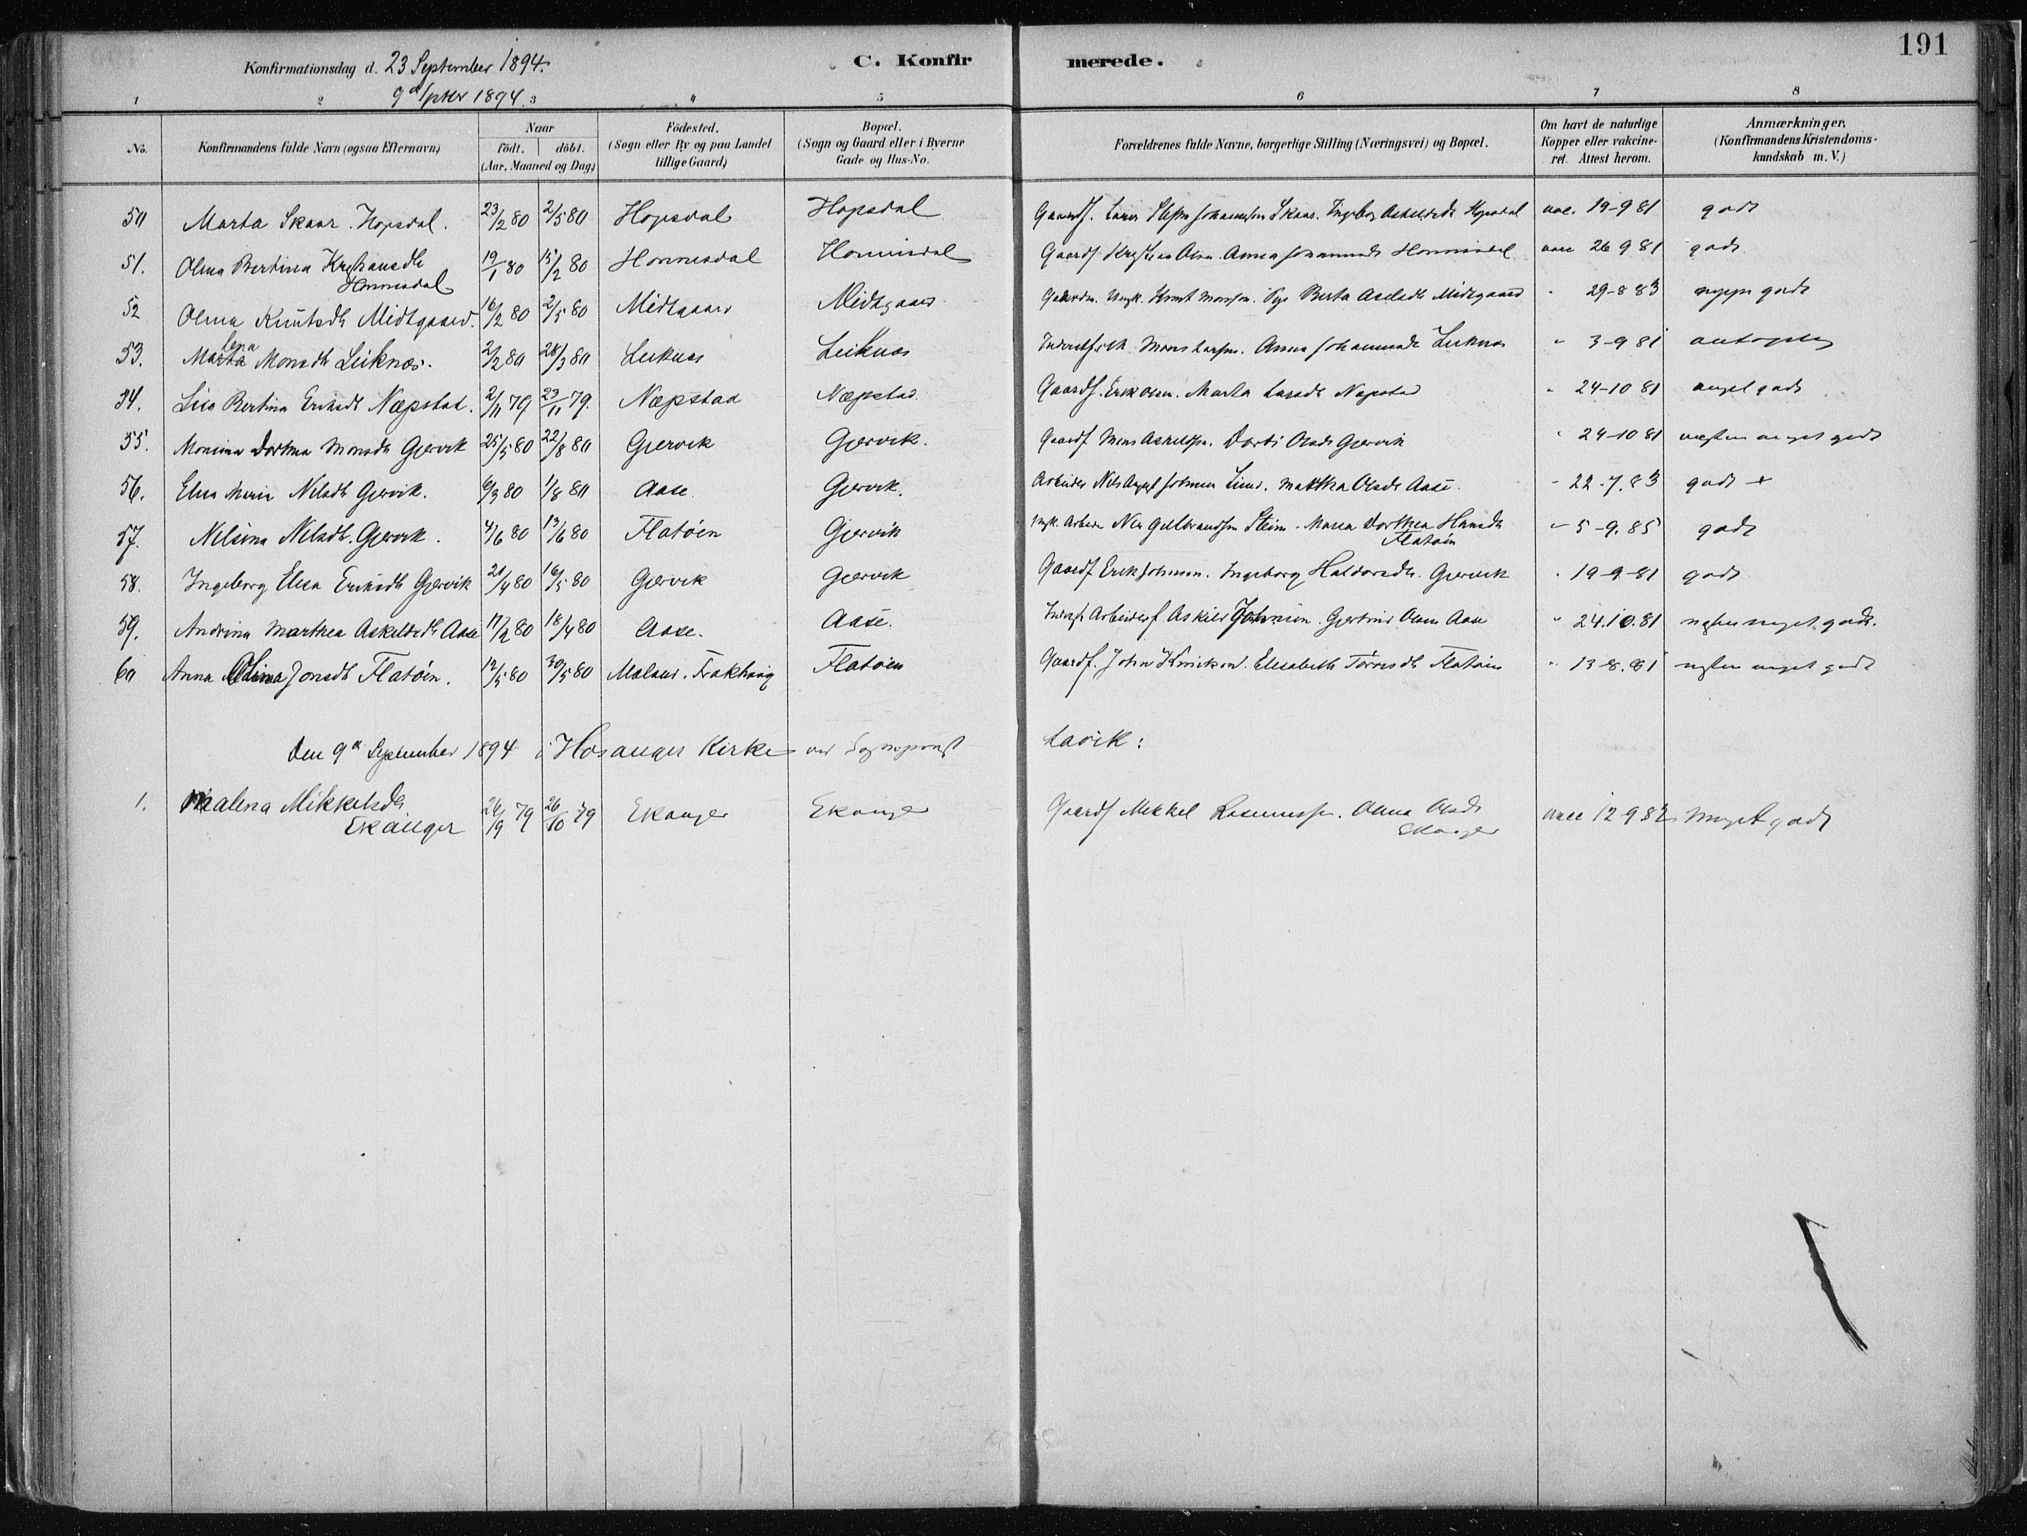 191
Konfirmationsdag d. 23 September 1894.
C. Konfirmerede.
9de Septbr 1894.
1 2 3 4 5 6 7 8
No. Konfirmandens fulde Navn (ogsaa Efternavn) Naar födt. döbt. (Aar, Maaned og Dag) Födested. (Sogn eller By og paa Landet tillige Gaard) Bopæl. (Sogn og Gaard eller i Byerne Gade og Hus-No. Forældrenes fulde Navne, borgerlige Stilling (Næringsvei) og Bopæl. Om havt de naturlige Kopper eller vakcineret. Attest herom. Anmærkninger, (Konfirmandens Kristendomskundskab m. V.)
50 Marta Skaar. Hopsdal. 23/2 80 2/5 80 Hopsdal Hopsdal Gaardf. Johannessen Skaar. Ingeborg Hopsdal vac. 19-9 81 godt
51. Olina Bertina Kristiansdtr Honnesdal 19/1 80 15/2 80 Honnesdal Honnesdal Gaardf. Kristian Olsen. Anna Johannesdtr Honnesdal vacc 26 9 81 godt
52 Olina Knutsdtr Midtgaard. 16/2 80 2/5 80 Midtgaard Midtgaard Knut Monsen. Berta Midtgaard " 29-8 83 godt
53. Marta Lena Monsdtr Leiknæs. 2/2 80 28/3 80 Leiknæs Leiknæs Mons Larsen. Anna Johannesdtr Leiknæs " 3-9 81 antagelig
54. Lisa Bertina Eriksdt Næpstad. 2/11 79 23/11 79. Næpstad Næpstad Gaardf. Erik Olsen. Marta Larsdt Næpstad " 24-10 81 meget godt
55. Monsina Dorthea Monsdt Gjervik 25/5 80 22/8 80 Gjervik Gjervik. Gaardf Mons Askelsen. Olsdt Gjervik " 24-10 81 næsten meget godt
56. Elen Maria Nilsdt Gjervik. 6/3 80 1/8 80 Aase Gjervik. Arbeider Nils Johnsen Lund. Martha Olsdt Aase. " 22-7.83 godt +
57. Nilsina Nilsdt. Gjervik. 4/6 80 13/6 80 Flatöen Gjervik Arbeider Nils Gulbrandsen Stein. Maren Dorthea Hansdt Flatöen " 5-9.85 godt
58. Ingeborg Elisa Eriksdt Gjervik 21/4 80 16/5 80 Gjervik Gjervik Gaardf Erik Johnsen. Ingeborg Haldorsdt. Gjervik " 19-9-81 godt
59. Andrina Marthea Askeldsdt Aase 17/2 80 18/4 80 Aase. Aase. Arbeiderf Askild Johnsen. Gjertrud Olsen Aase " 24.10.81 næsten meget godt.
60 Anna Olina Jonsdt Flatöen. 12/5 80 30/5 80 Flatöen Gaardf. John Elisabeth Flatöen " 13-8.81 næsten meget godt
Den 9de September 1894 i Hosanger Kirke ved Sogneprest Lavik:
1. Malena Mikkelsdtr Ekanger 26/9 79 26/10 79 Ekanger Ekanger Gaardf Mikkel Rasmussen. Anna Olsdt Ekanger vacc 12 9 82 Meget godt